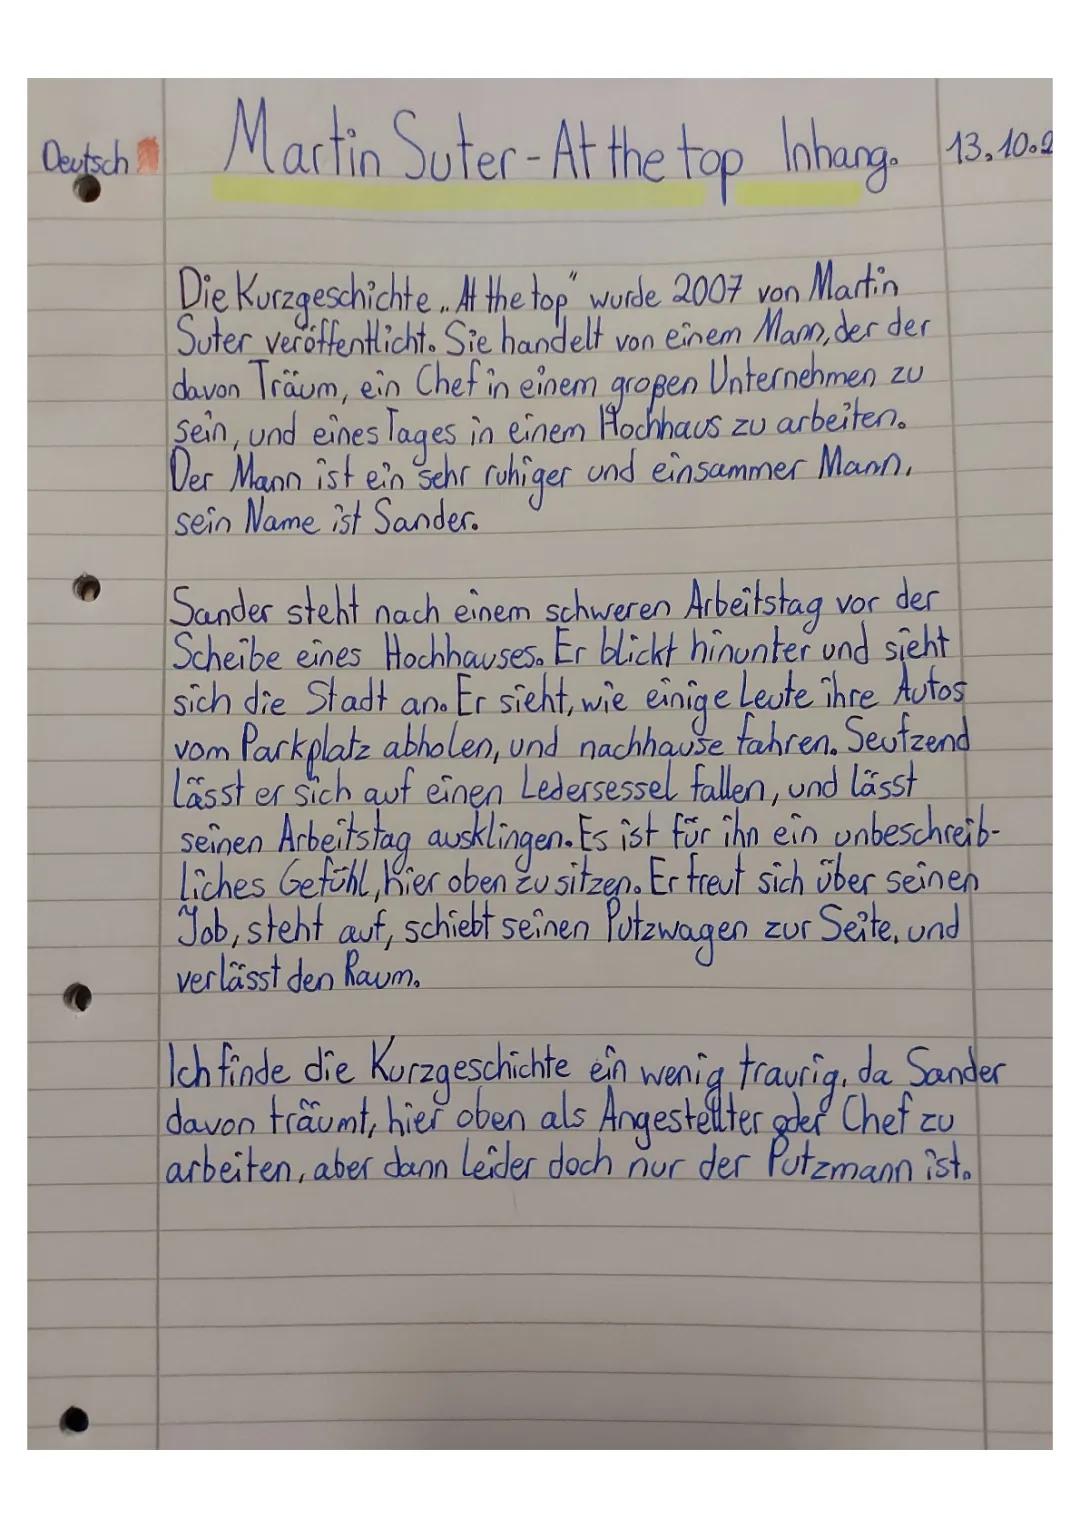 Deutsch Martin Suter-At the top Inhang. 13.10.2
Die Kurzgeschichte „At the top" wurde 2007 von Martin
Suter veröffentlicht. Sie handelt von einem Mann, der der
davon Träum, ein Chef in einem großen Unternehmen zu
sein, und eines Tages in einem Hochhaus zu arbeiten.
Der Mann ist ein sehr ruhiger und einsammer Mann,
sein Name ist Sander.
Sander steht nach einem schweren Arbeitstag vor der
Scheibe eines Hochhauses. Er blickt hinunter und sieht
sich die Stadt an. Er sieht, wie einige Leute ihre Autos
vom Parkplatz abholen, und nachhause fahren. Seufzend
lässt er sich auf einen Ledersessel fallen, und lässt
seinen Arbeitstag ausklingen. Es ist für ihn ein unbeschreib-
liches Gefühl, hier oben zu sitzen. Er freut sich über seinen
Job, steht auf, schiebt seinen Putzwagen zur Seite, und
verlässt den Raum.
Ich finde die Kurzgeschichte ein wenig traurig, da Sander
davon träumt, hier oben als Angestellter oder Chef zu
arbeiten, aber dann leider doch nur der Putzmann ist.